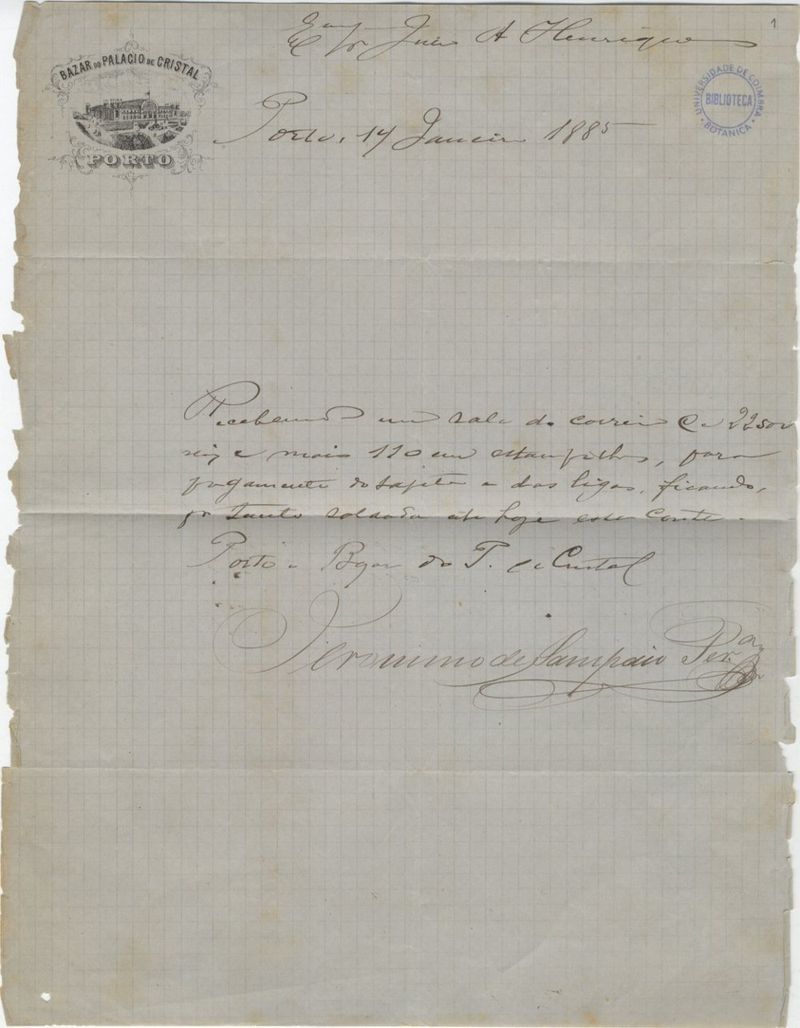 1
Exmo Sr Julio A Henriques
BAZAR DO PALACIO DE CRISTAL
PORTO
UNIVERSIDADE DE COIMBRA
BIBLIOTECA
BOTANICA
Porto, 14 Janeiro 1885
Recebemos um vale do correio de
reis e mais 120 em estampilhas, para
pagamento do e das ligas, ficando,
por tanto soldada até hoje esta conta.
Porto e Bazar do P. de Cristal
Jeronimo de Sampaio